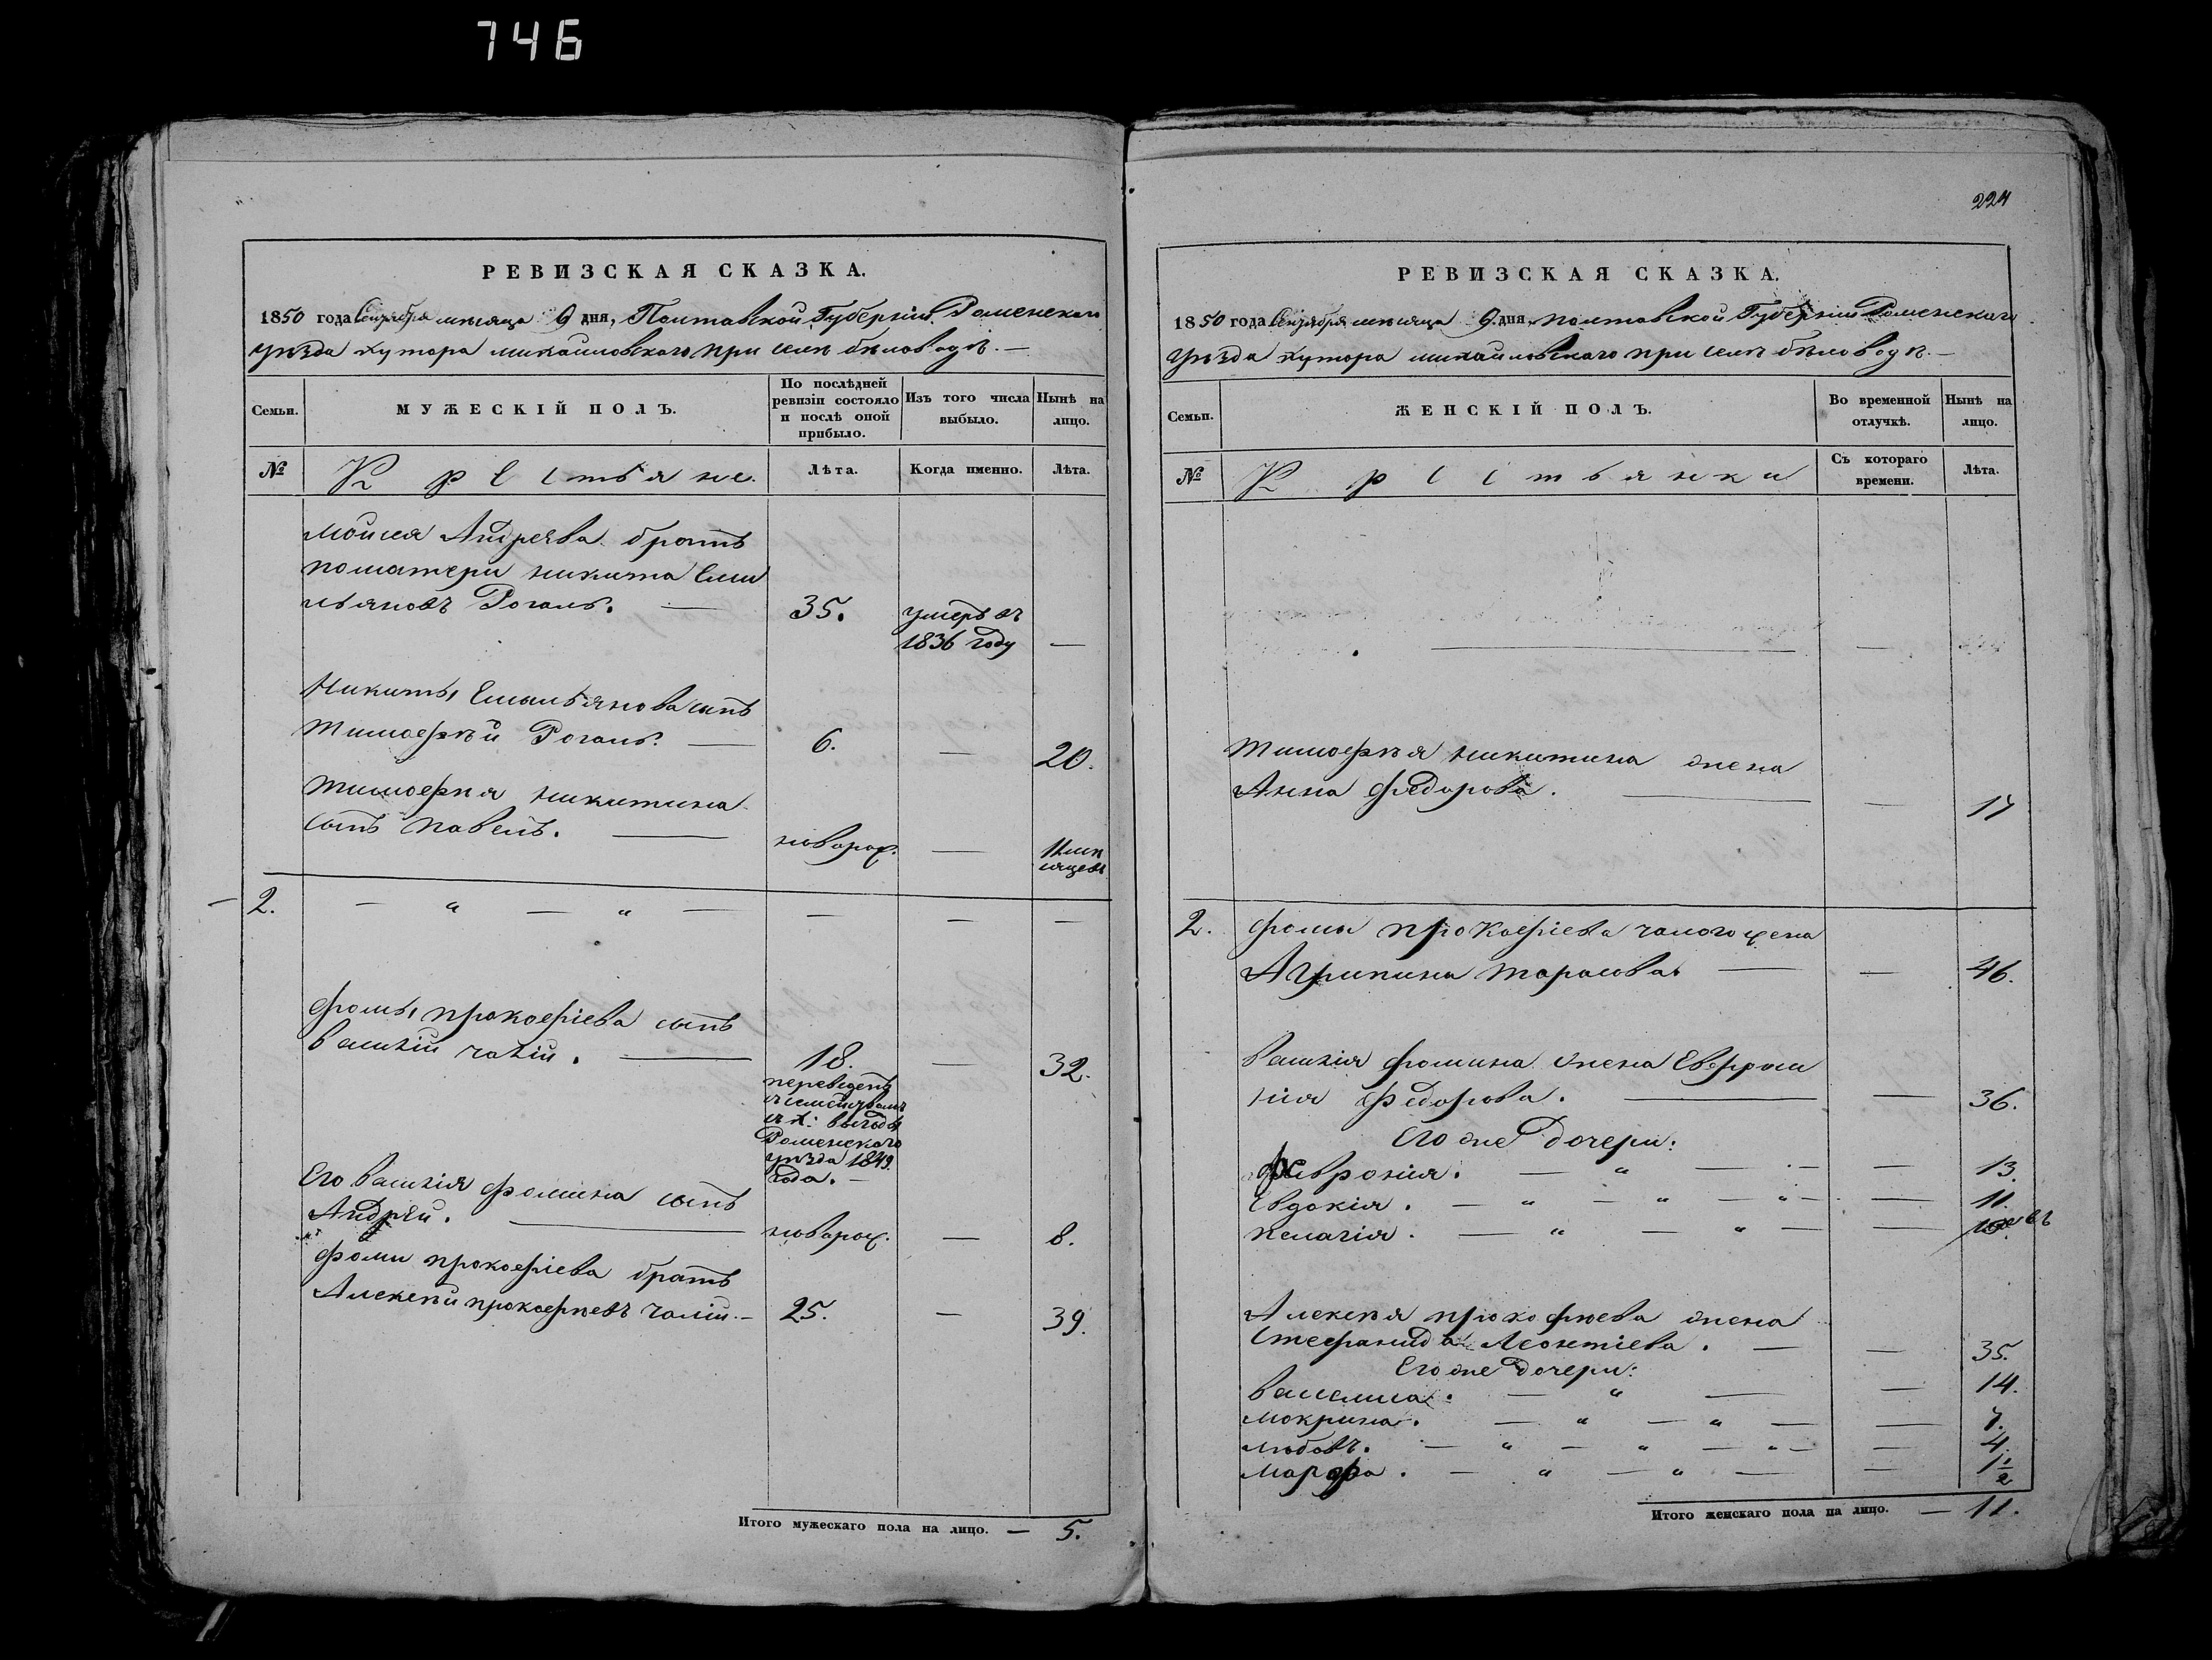 746
РЕВИЗСКАЯ СКАЗКА.
1850 года Сентября месяца 9 дня, Полтавской Губерніи Роменскаго
уѣзда хутора Михайловскаго при селѣ бѣловодѣ. —
Семьи.
МУЖЕСКІЙ ПОЛЪ.
По послѣдней ревизіи состояло и послѣ оной прибыло.
Изъ того числа выбыло.
Нынѣ на лицо.
№
Крестьяне.
Лѣта.
Когда именно.
Лѣта.
Мойсея Андреева братъ
поматери Никита Еми
льяновъ Рогаль. — 35. умеръ въ
1836 году —
Никиты Емельянова сынъ
Тимоѳей Рогаль. — 6. — 20.
Тимоѳея Никитина
сынъ Павелъ. — новорож. — 11 мѣ
сяцевъ
2. — " — " — — — —
Фомы Прокофіева сынъ
Василій Чалій. — 18. — 32.
переведенъ
Роменскаго
уѣзда 1849
года. —
Его Василія Фомина сынъ
Андрей. — новорож. — 8.
Фомы Прокофіева братъ
Алексѣй Прокофѣевъ Чалій. — 25. — 39.
Итого мужескаго пола на лицо. — 5.
224
РЕВИЗСКАЯ СКАЗКА.
1850 года Сентября месяца 9 дня, Полтавской Губерніи Роменскаго
уѣзда хутора Михайловскаго при селѣ бѣловодѣ. —
Семьи.
ЖЕНСКІЙ ПОЛЪ.
Во временной отлучкѣ.
Нынѣ на лицо.
№
Крестьянки
Съ котораго времени.
Лѣта.
Тимоѳея Никитина жена
Анна Федорова. — — 17
2. Фомы Прокофіева Чалого жена
Агрипина Тарасова — — 46.
Василія Фомина жена Евфроси
нія Федорова. — — 36.
Его же дочери:
Февронія. — " — — 13.
Евдокія. — " — " — " — — 11.
Пелагія. — " — " — —
Алексѣя Прокофѣева жена
Стефанида Леонтіева. — — 35.
Его же дочери:
Василиса. — " — — 14.
Мокрина. — " — " — — 7.
Любовъ. — " — " — " — — 4.
Марфа. — " — " — — 1½
Итого женскаго пола на лицо. — 11.